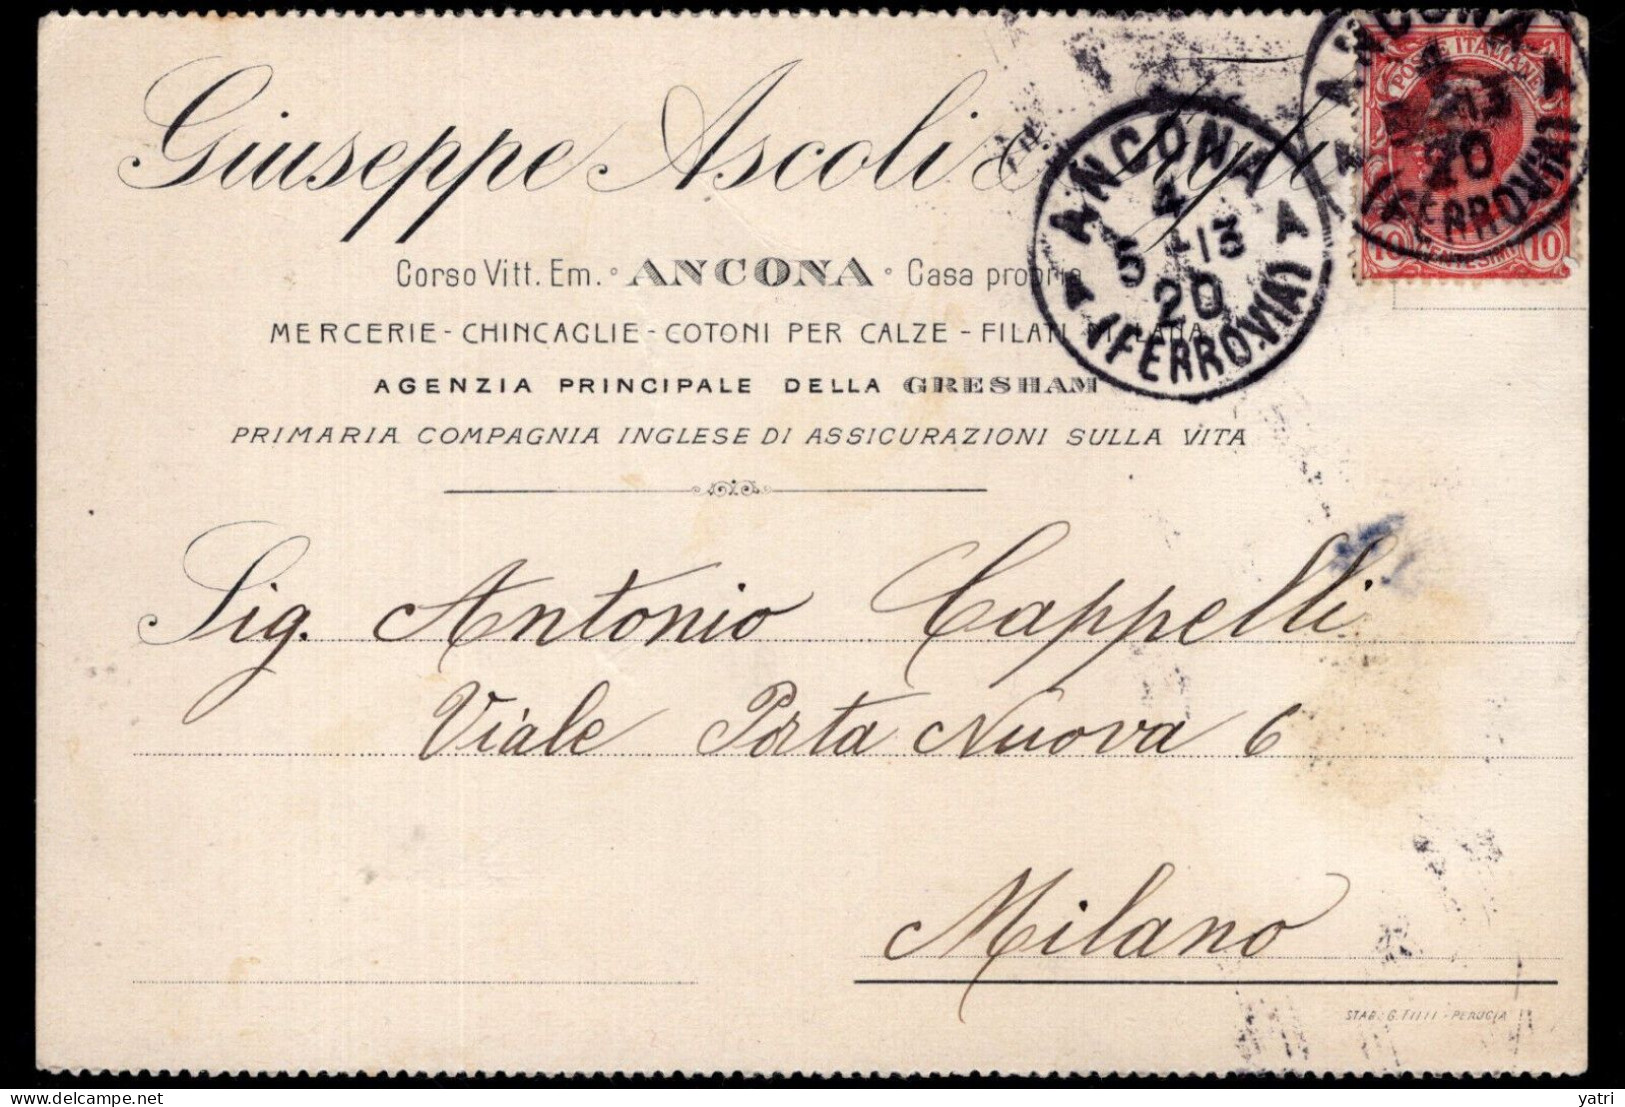 Giuseppe Ascoli & Figli
Corso Vitt. Em. ° ANCONA ° Casa propria
MERCERIE - CHINCAGLIE - COTONI PER CALZE - FILATI DI LANA
AGENZIA PRINCIPALE DELLA GRESHAM
PRIMARIA COMPAGNIA INGLESE DI ASSICURAZIONI SULLA VITA
POSTE ITALIANE
10 CENTESIMI 10
ANCONA
13
20
(FERROVIA)
ANCONA
4
5 13
20
(FERROVIA)
Sig. Antonio Cappelli
Viale Porta Nuova 6
Milano
STAB. G. - PERUGIA
yatri